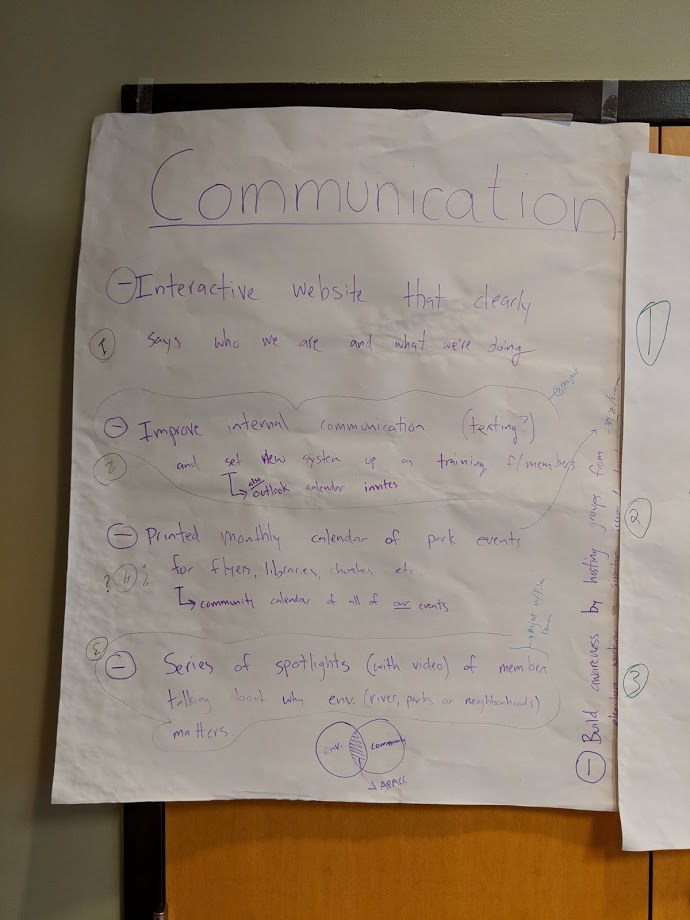 Communication
- Interactive website that clearly
1 says who we are and what we're doing
- Improve internal communication (texting?)
2 and set new system up as training f/members
also
outlook calendar invites
- Printed monthly calendar of park events
? 4 ? for flyers, libraries, churches etc.
community calendar of all of our events
3
- Series of spotlights (with video) of members
talking about why env. (river, parks or neighborhoods)
matters
env. community
ARACC
project
Team
- Build awareness by hosting groups from
1
2
3